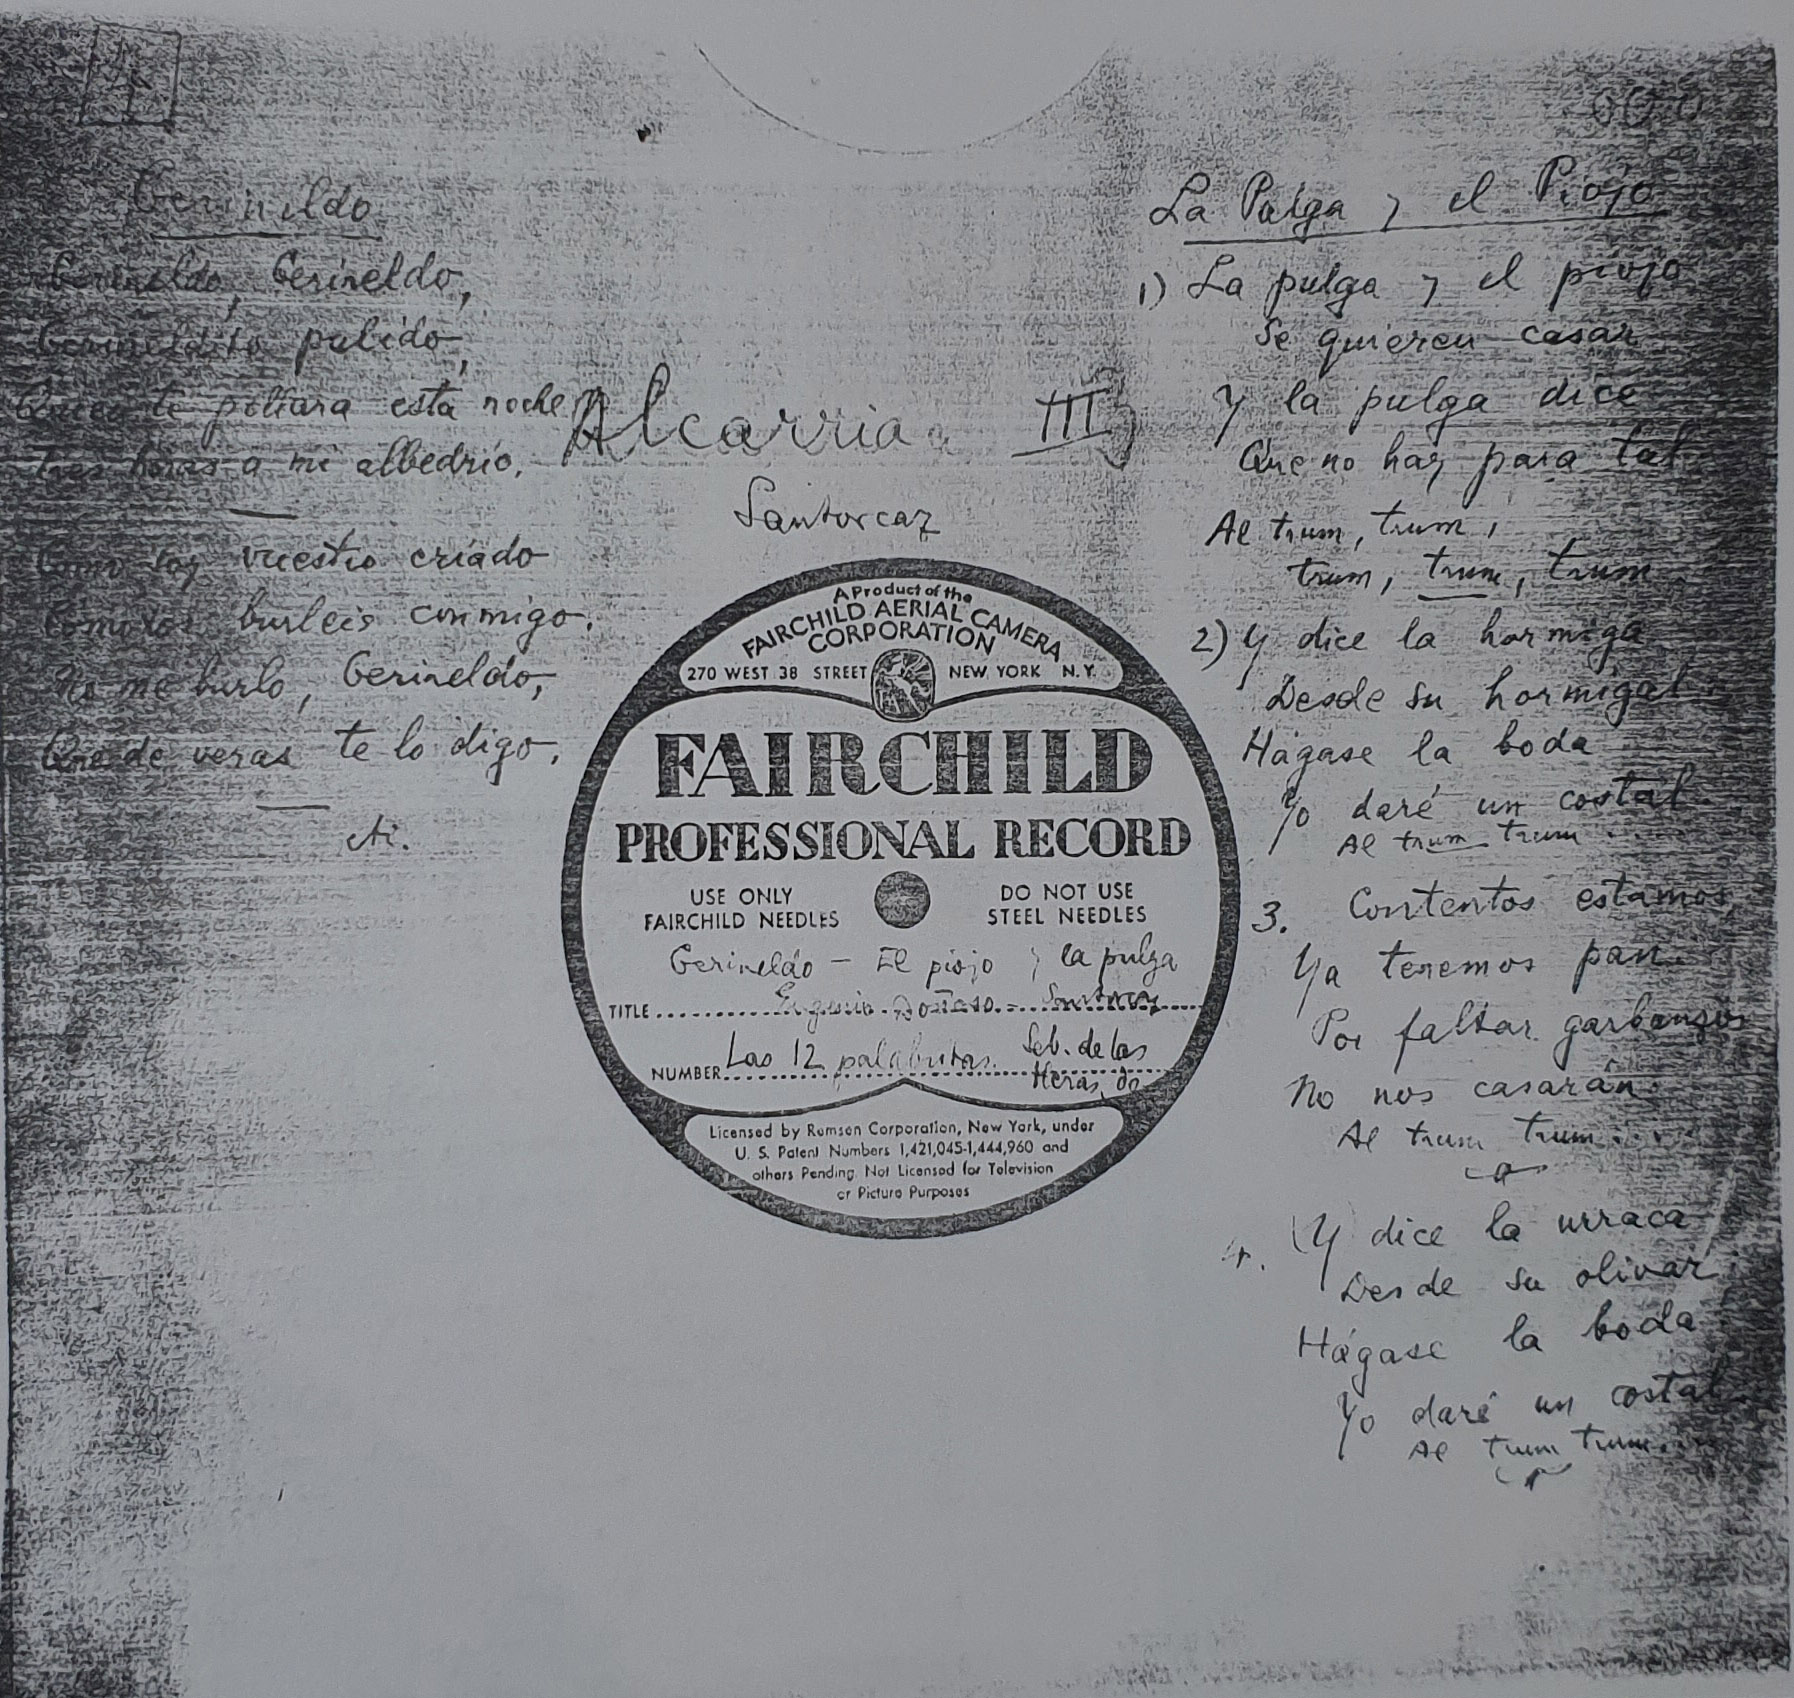 4
Gerineldo
Gerineldo, Gerineldo,
Gerineldito pulido,
Quien te pillara esta noche
tres horas a mi albedrío.
Como soy vuestro criado
burleis conmigo.
No me burlo, Gerineldo,
Que de veras te lo digo.
Alcarria III
Santorcaz
A Product of the
FAIRCHILD AERIAL CAMERA
CORPORATION
270 WEST 38 STREET NEW YORK N.Y.
FAIRCHILD
PROFESSIONAL RECORD
USE ONLY
FAIRCHILD NEEDLES
DO NOT USE
STEEL NEEDLES
Gerineldo – El piojo y la pulga
TITLE Eugenio Santorcaz
NUMBER Las 12 palabritas. Seb. de las
Heras,
Licensed by Ramsen Corporation, New York, under
U. S. Patent Numbers 1,421,045-1,444,960 and
others Pending. Not Licensed for Television
or Picture Purposes
La Pulga y el Piojo
1) La pulga y el piojo
Se quieren casar
Y la pulga dice
Que no hay para tal
Al trum, trum,
trum, trum, trum.
2) Y dice la hormiga
Desde su hormigal
Hágase la boda
Yo daré un costal.
Al trum trum ....
3. Contentos estamos
Ya tenemos pan.
Por faltar garbanzos
No nos casarán.
Al trum trum ....
4. Y dice la urraca
Desde su olivar
Hágase la boda
Yo daré un costal.
Al trum trum....